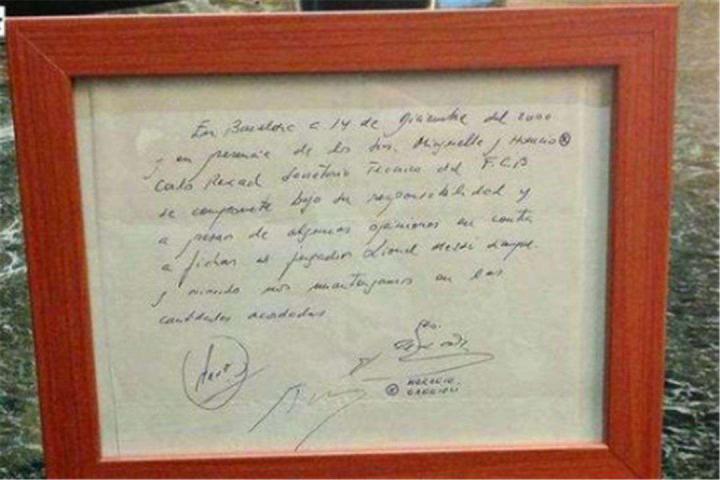 En Barcelona a 14 de Diciembre del 2000
y en presencia de los Srs. Minguella y Horacio ®
Carlo Rexach Secretario Tecnico del F.C.B
se compromete bajo su responsabilidad y
a pesar de algunas opiniones en contra
a fichar al jugador Lionel Messi siempre
y cuando nos mantengamos en las
cantidades acordadas
® HORACIO
GAGGIOLI